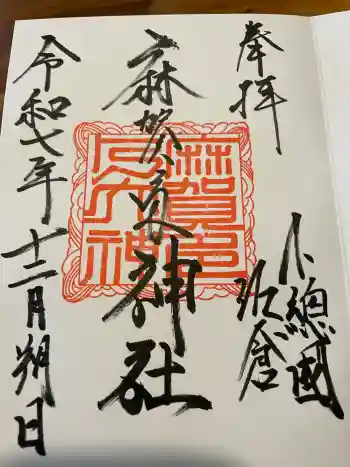 奉拝
下總國
佐倉
麻賀多神社
令和七年十二月朔日